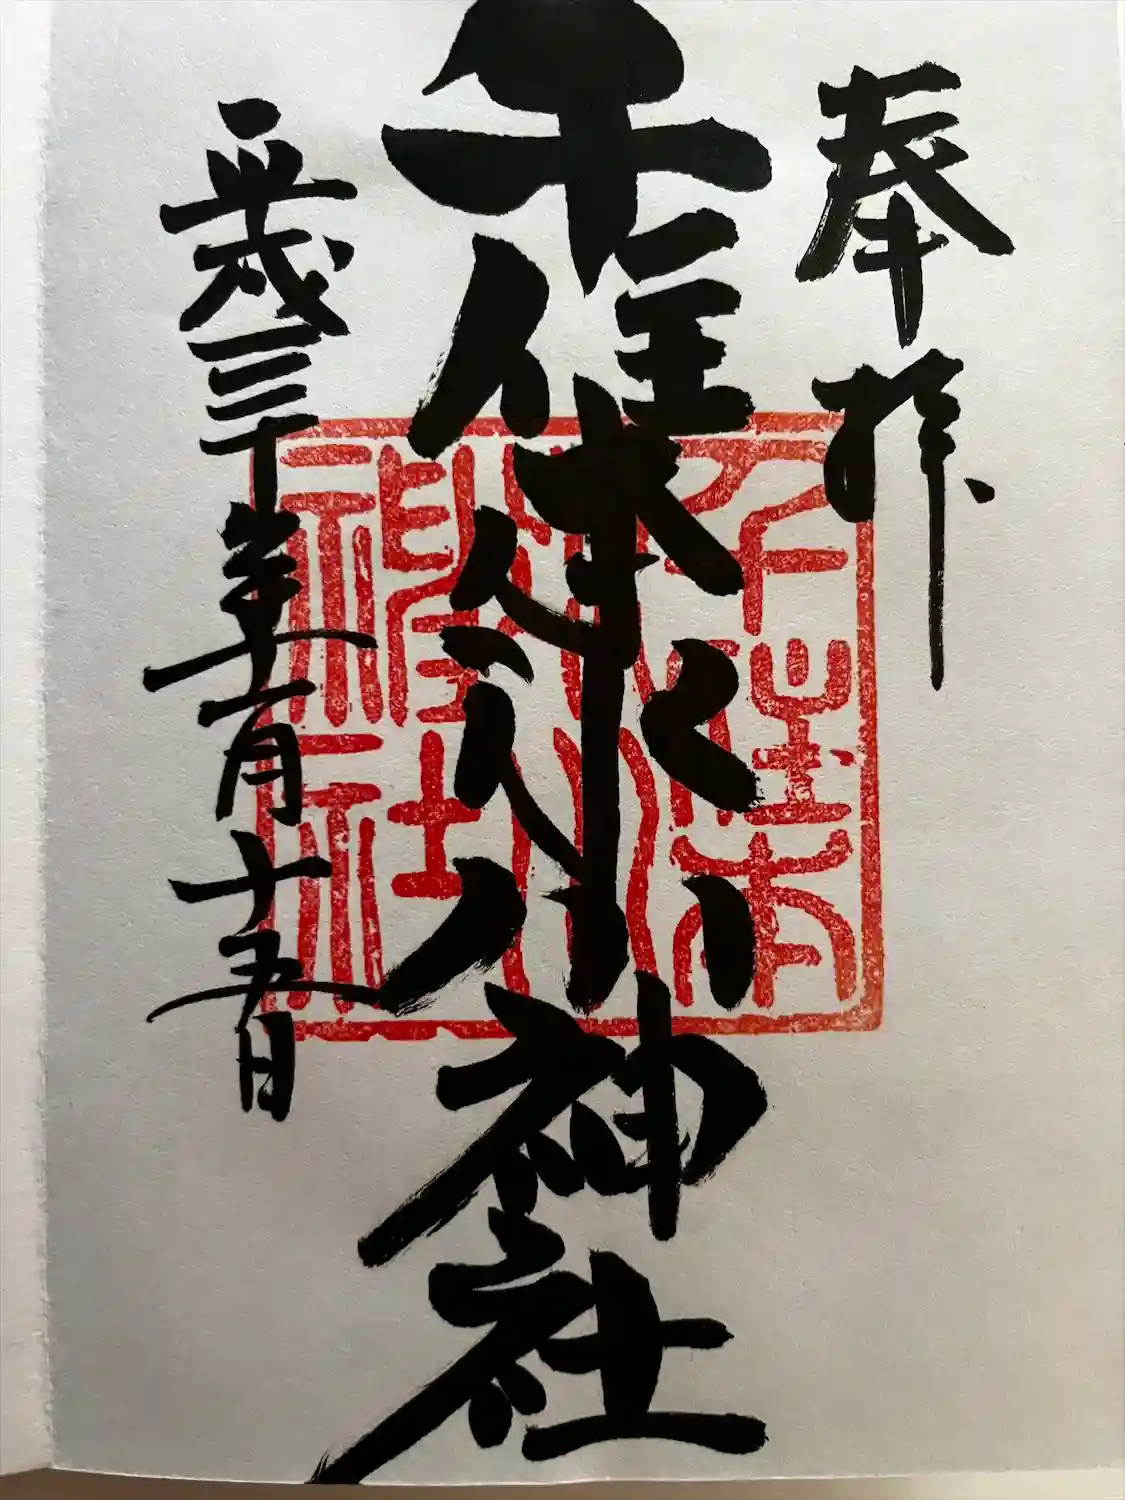 奉拝
千住本氷川神社
平成三十年十一月十五日
千住本
氷川
神社